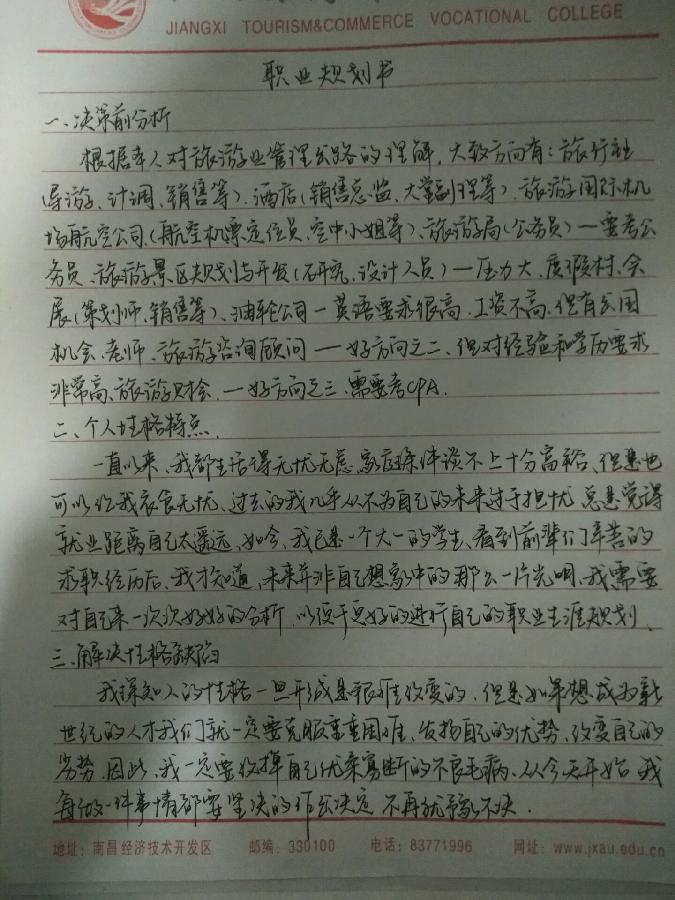 JIANGXI TOURISM&COMMERCE VOCATIONAL COLLEGE
职业规划书
一、决策前分析
根据本人对旅游业管理出路的理解,大致方向有:旅行社
(导游、计调、销售等)、酒店(销售总监、大堂副理等)、旅游国际机
场航空公司(航空机票定位员、空中小姐等)、旅游局(公务员)—要考公
务员、旅游景区规划与开发(研究、设计人员)—压力大、度假村、会
展(策划师、销售等)、油轮公司—英语要求很高,工资不高,但有出国
机会、老师、旅游咨询顾问——好方向之二、但对经验和学历要求
非常高、旅游财会、—好方向之三、需要考CPA.
二、个人性格特点.
一直以来,我都生活得无忧无虑,家庭条件谈不上十分富裕、但是也
可以让我衣食无忧、过去的我几乎从不为自己的未来过于担忧,总是觉得
就业距离自己太遥远、如今,我已是一个大一的学生、看到前辈们辛苦的
求职经历后、我才知道,未来并非自己想象中的那么一片光明、我需要
对自己来一次次好好的分析,以便于更好的进行自己的职业生涯规划、
三、解决性格缺陷
我深知人的性格一旦形成是很难改变的,但是如果想成为新
世纪的人才我们就一定要克服重重困难、发扬自己的优势、改变自己的
劣势、因此、我一定要改掉自己优柔寡断的不良毛病、从今天开始,我
每做一件事情都要坚决的作出决定,不再犹豫不决.
地址:南昌经济技术开发区 邮编:330100 电话:83771996 网址:www.jxau.edu.cn